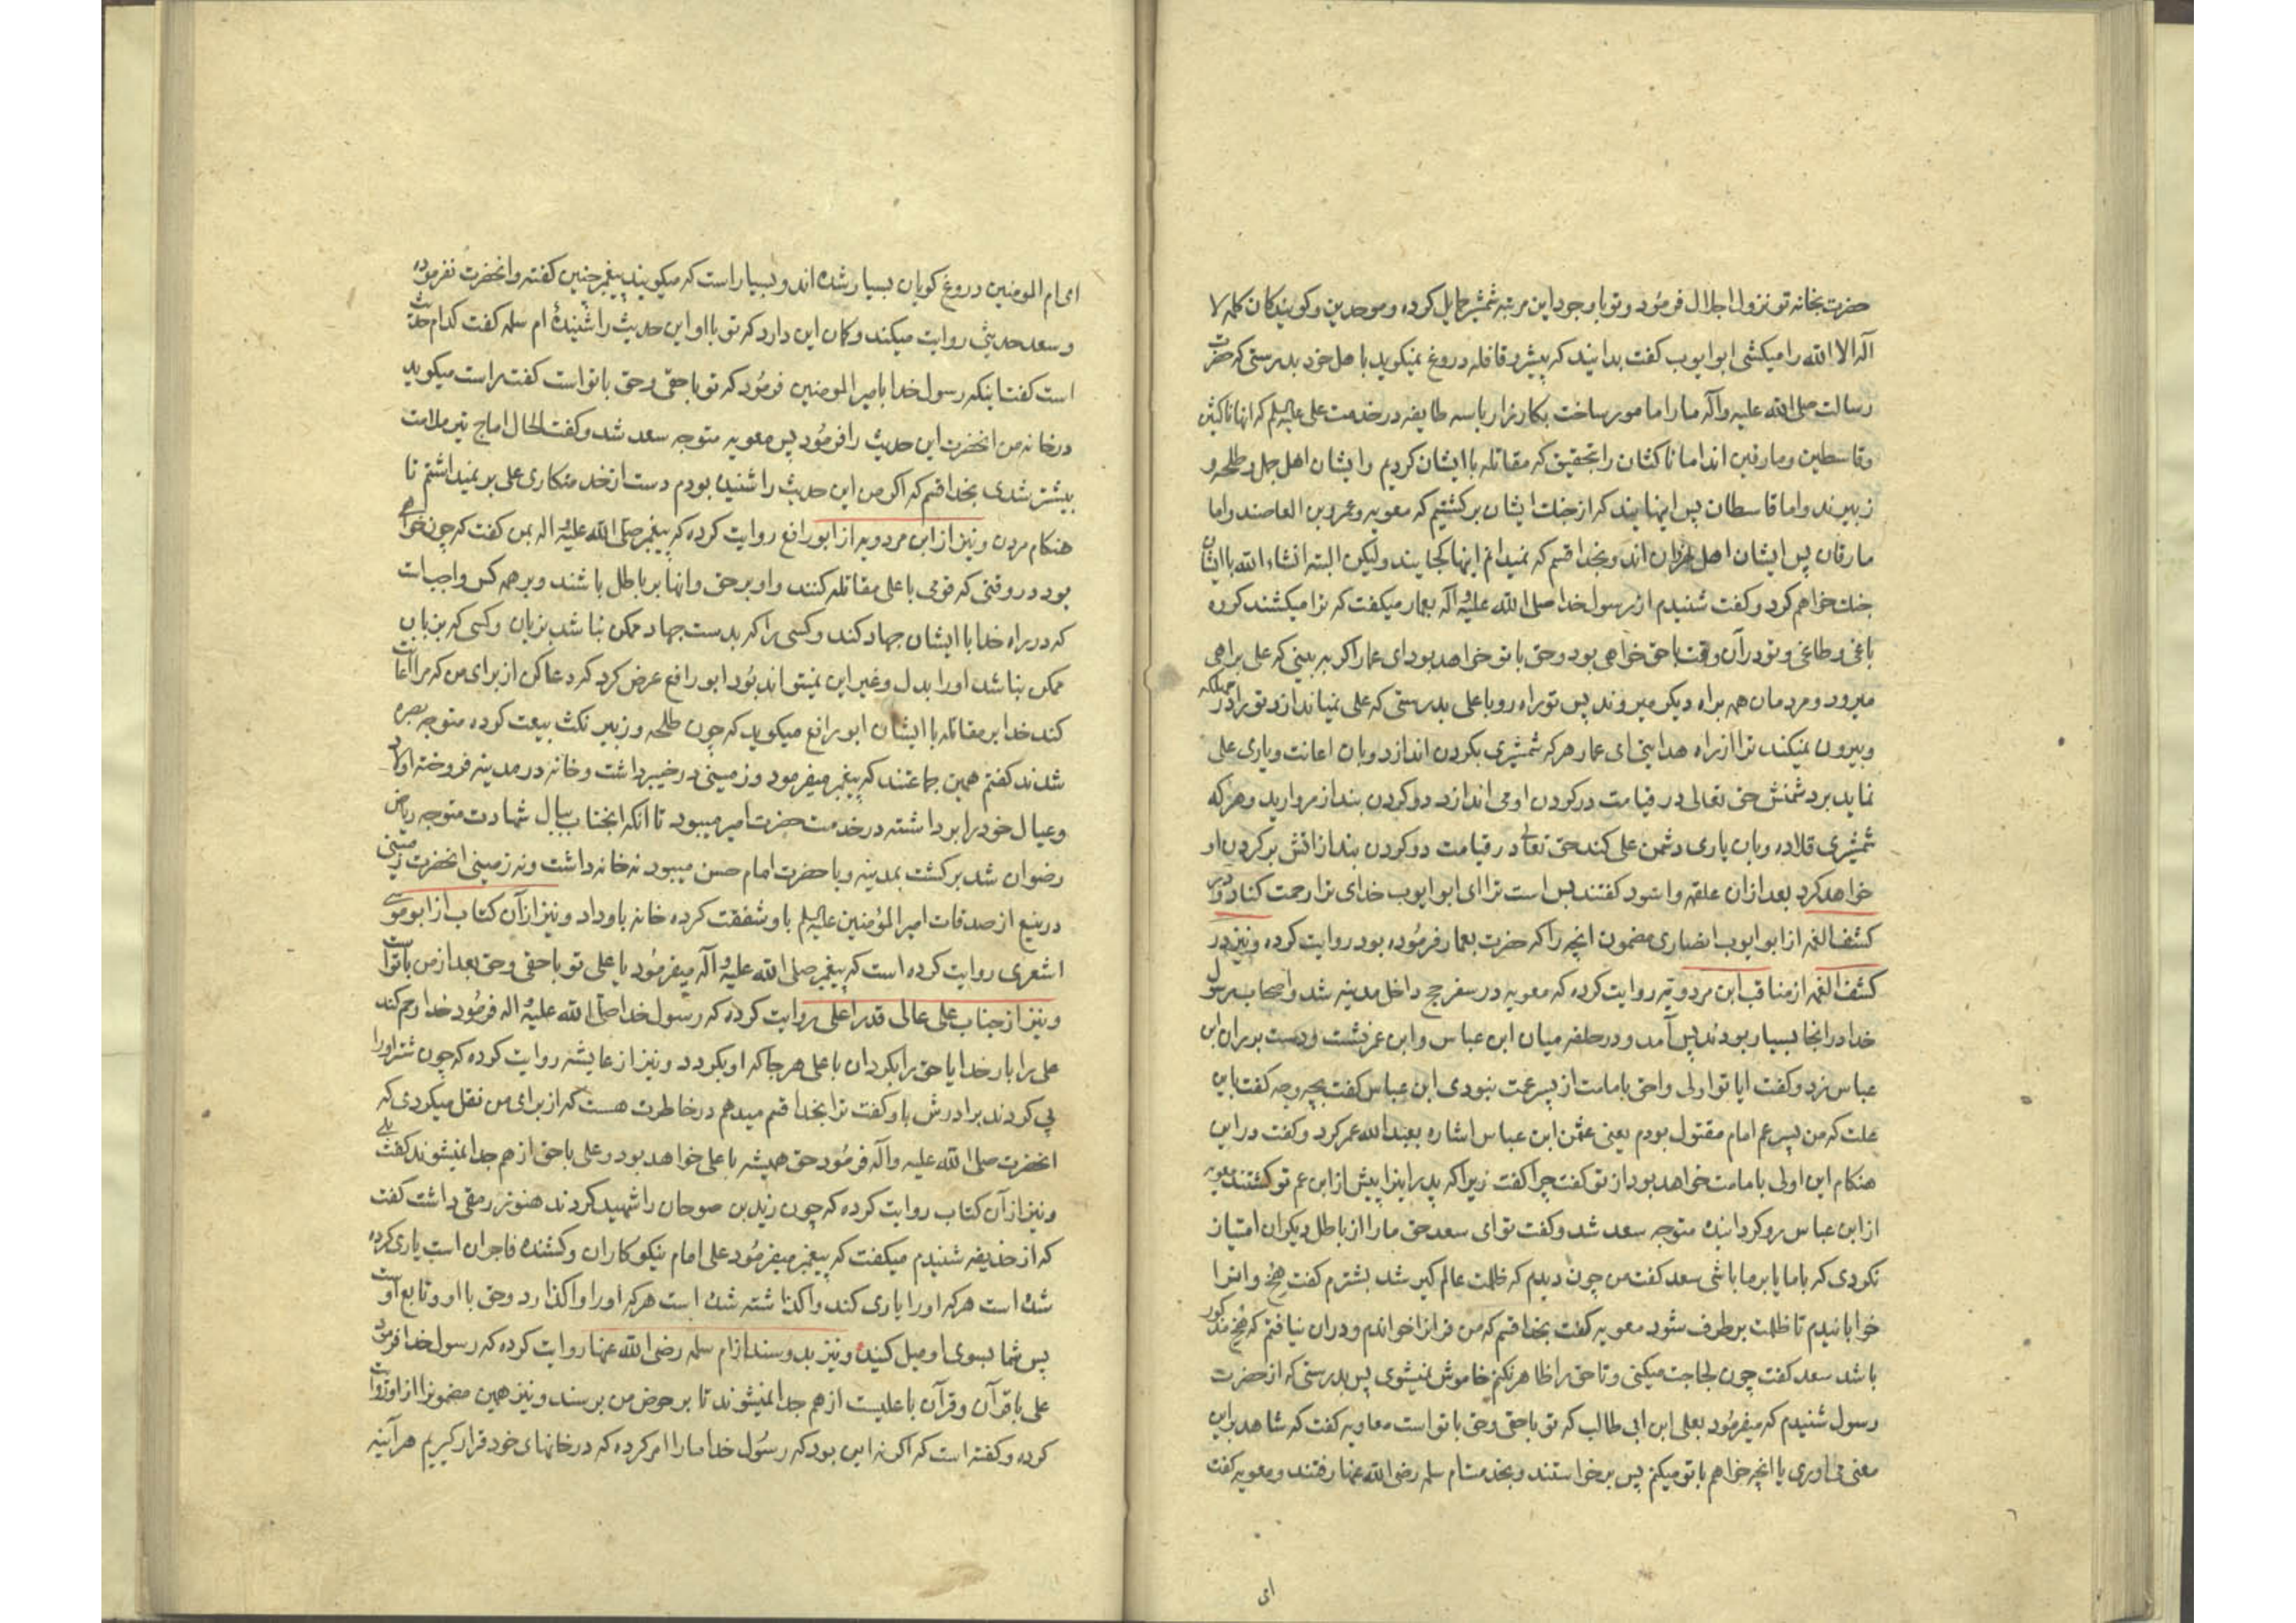 حضرت بخانه تو نزول اجلال فرمود و تو با وجود این مرتبه شمشیر حمایل کرده و موحدین و کویندکان کلمه لا
اله الا الله را میکشی ابو ایوب کفت بدانید که پیشرو قافله دروغ نمیکوید با اهل خود بدرستی که حضرت
رسالت صلی الله علیه وآله ما را مامور ساخت بکارزار با سه طایفه در خدمت علی علیه السلم که انها ناکثین
وقاسطین ومارقین اند اما ناکثان را بتحقیق که مقاتله با ایشان کردیم وایشان اهل جمل وطلحه و
زبیرند واما قاسطان پس اینهایند که از جنك ایشان برکشتیم که معویه وعمرو بن العاصند واما
مارقان پس ایشان اهل اند وبخدا قسم که نمیدانم اینها کجایند ولیکن البته انشاء الله با ایشان
جنك خواهم کرد وکفت شنیدم از رسول خدا صلی الله علیه وآله بعمار میکفت که ترا میکشند کروه
باغی وطاغی وتو در آن وقت با حق خواهی بود وحق با تو خواهد بود ای عمار اکر به بینی که علی براهی
میرود ومردمان همه براه دیکر میروند پس تو راه رو با علی بدرستی که علی نمیاندازد تو را در مهلکه
وبیرون نمیکند ترا از راه هدایتی ای عمار هر که شمشیری بکردن اندازد وبان اعانت ویاری علی
نماید بر دشمنش حق تعالی در قیامت در کردن او می اندازد دو کردن بند از مروارید وهر که
شمشیری قلاده وبان یاری دشمن علی کند حق تعالی در قیامت دو کردن بند از اتش بر کردن او
خواهد کرد بعد از ان علقمه واسود کفتند بس است ترا ای ابو ایوب خدای ترا رحمت کناد و در
کشف الغمه از ابو ایوب انصاری مضمون انچه را که حضرت بعمار فرموده بود روایت کرده ونیز در
کشف الغمه از مناقب ابن مردویه روایت کرده که معویه در سفر حج داخل مدینه شد واصحاب رسول
خدا در انجا بسیار بودند پس آمد ودر حلقه میان ابن عباس وابن عمر نشست ودست بر ران ابن
عباس زد وکفت ایا تو اولی واحق بامامت از پسر عمت نبودی ابن عباس کفت بچه وجه کفت باین
علت که من پسر عم امام مقتول بودم یعنی عثمن ابن عباس اشاره بعبد الله عمر کرد وکفت در این
هنکام این اولی بامامت خواهد بود از تو کفت چرا کفت زیرا که پدر اینرا پیش از ابن عم تو کشتند معویه
از ابن عباس رو کردانیده متوجه سعد شد وکفت تو ای سعد حق ما را از باطل دیکران امتیاز
نکردی که با ما یا بر ما باشی سعد کفت من چون دیدم که ظلمت عالم کیر شد بشترم کفت هخ واترا
خوابانیدم تا ظلمت بر طرف شود معویه کفت بخدا قسم که من قرانرا خواندم ودران نیافتم که هخ مذکور
باشد سعد کفت چون لجاجت میکنی وتا حق را ظاهر نکنم خاموش نمیشوی پس بدرستی که از حضرت
رسول شنیدم که میفرمود بعلی ابن ابی طالب که تو با حق وحق با تو است معاویه کفت که شاهد بر این
معنی می اوری یا انچه خواهم با تو میکنم پس برخواستند وبخدمت ام سلمه رضی الله عنها رفتند ومعویه کفت
ای
ای ام المومنین دروغ کویان بسیار شده اند وبسیار است که میکویند پیغمبر چنین کفته وانحضرت نفرموده
وسعد حدیثی روایت میکند وکمان این دارد که تو با او این حدیث را شنیدهٔ ام سلمه کفت کدام حدیث
است کفت اینکه رسول خدا بامیر المومنین فرمود که تو با حقی وحق با تو است کفت راست میکوید
در خانه من انحضرت این حدیث را فرمود پس معویه متوجه سعد شد وکفت الحال اماج تیر ملامت
بیشتر شدی بخدا قسم که اکر من این حدیث را شنیده بودم دست از خدمتکاری علی بر نمیداشتم تا
هنکام مردن ونیز از ابن مردویه از ابو رافع روایت کرده که پیغمبر صلی الله علیه واله بمن کفت که چون خواهی
بود در وقتی که قومی با علی مقاتله کنند واو بر حق وانها بر باطل باشند وبر همه کس واجب است
که در راه خدا با ایشان جهاد کند وکسی را که بدست جهاد ممکن نباشد بزبان وکسی که بزبان
ممکن نباشد او را بدل وغیر این نمیتواند بود ابو رافع عرض کرد که دعا کن از برای من که مرا اعانت
کند خدا بر مقاتله با ایشان ابو رافع میکوید که چون طلحه وزبیر نکث بیعت کرده متوجه بصره
شدند کفتم همین جماعتند که پیغمبر میفرمود وزمینی در خیبر داشت وخانه در مدینه فروخته اولاد
وعیال خود را برداشته در خدمت حضرت امیر میبود تا انکه انجناب ببال شهادت متوجه ریاض
رضوان شد برکشت بمدینه وبا حضرت امام حسن میبود نه خانه داشت ونه زمینی انحضرت زمینی
در ینبع از صدقات امیر المؤمنین علیه السلم باو شفقت کرده خانه باو داد ونیز از آن کتاب از ابو موسی
اشعری روایت کرده است که پیغمبر صلی الله علیه وآله میفرمود یا علی تو با حقی وحق بعد از من با تو است
ونیز از جناب علی عالی قدر اعلی روایت کرده که رسول خدا صلی الله علیه واله فرمود خدا رحم کند
علی را بار خدایا حق را بکردان با علی هر جا که او بکردد ونیز از عایشه روایت کرده که چون شتر او را
پی کردند برادرش باو کفت ترا بخدا قسم میدهم در خاطرت هست که از برای من نقل میکردی که
انحضرت صلی الله علیه وآله فرمود حق همیشه با علی خواهد بود وعلی با حق از هم جدا نمیشوند کفت بلی
ونیز از آن کتاب روایت کرده که چون زید بن صوحان را شهید کردند هنوز رمقی داشت کفت
که از حذیفه شنیدم میکفت که پیغمبر میفرمود علی امام نیکوکاران وکشنده فاجران است یاری کرده
شده است هر که او را یاری کند واکذاشته شده است هر که او را واکذارد وحق با او وتابع اوست
پس شما بسوی او میل کنید ونیز بدو سند از ام سلمه رضی الله عنها روایت کرده که رسول خدا فرمود
علی با قرآن وقرآن با علیست از هم جدا نمیشوند تا بر حوض من برسند ونیز همین مضمونرا از او روایت
کرده وکفته است که اکر نه این بود که رسول خدا ما را امر کرده که در خانهای خود قرار کیریم هر آینه